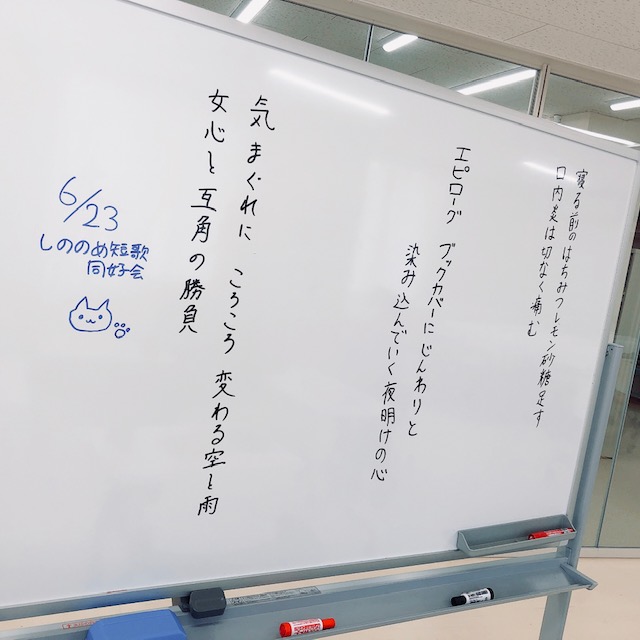 寝る前のはちみつレモン砂糖足す
口内炎は切なく痛む
エピローグ ブックカバーにじんわりと
染み込んでいく夜明けの心
気まぐれに ころころ 変わる空と雨
女心と互角の勝負
6/23
しののめ短歌
同好会